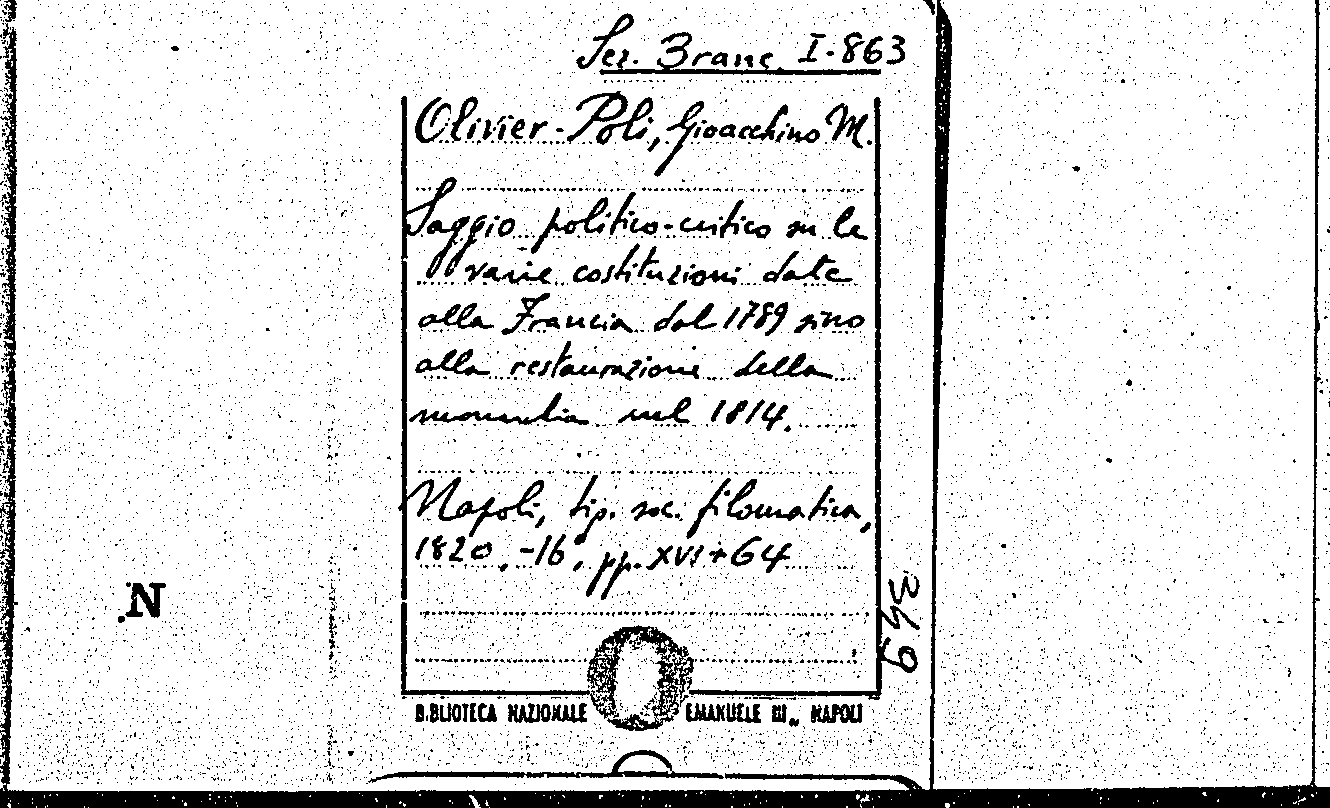 Sez. Branc. I-863
Olivier-Poli, Gioacchino M.
Saggio politico-critico su le
varie costituzioni date
alla Francia dal 1789 sino
alla restaurazione della
monarchia nel 1814.
Napoli, tip. soc. filomatica,
1820.-16°, pp. XVI+64
3449
N
BIBLIOTECA NAZIONALE EMANUELE III„ NAPOLI